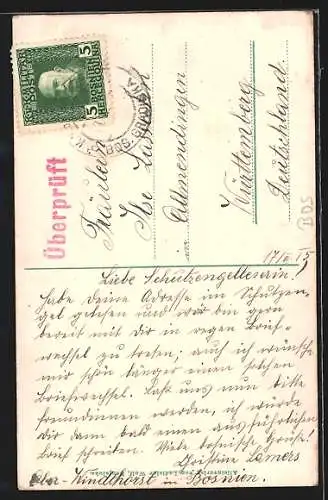 Überprüft
Fräulein
Ibe
in Allmendingen
Württemberg
Deutschland.
BOS
5 5
17/ 15
Liebe Schutzengelleserin!
Habe deine Adresse im Schutzen-
gel gelesen und bin gern
bereit mit dir in regen Brief-
wechsel zu treten; auch ich wünsche
mir schon länger einen solchen
Briefwechsel. Laß uns nun bitte
Freundinnen werden, ich würde
dir dann bald einen ausführlichen
Brief schreiben. Viele bosnische Grüße!
Christine Lamers
Windthorst in Bosnien.